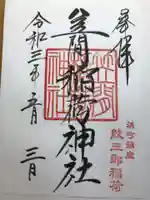 奉拝
笠間稲荷神社
令和三年 月
三日
浜町鎮座
紋三郎稲荷